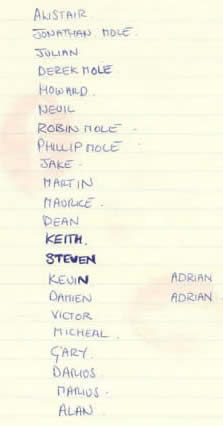 ALISTAIR
JONATHAN MOLE.
JULIAN
DEREK MOLE
HOWARD.
NEVIL
ROBIN MOLE.
PHILLIP MOLE.
JAKE.
MARTIN
MAURICE.
DEAN
KEITH.
STEVEN
KEVIN ADRIAN
DAMIEN ADRIAN
VICTOR
MICHEAL.
GARY.
DARIUS.
MARIUS.
ALAN.